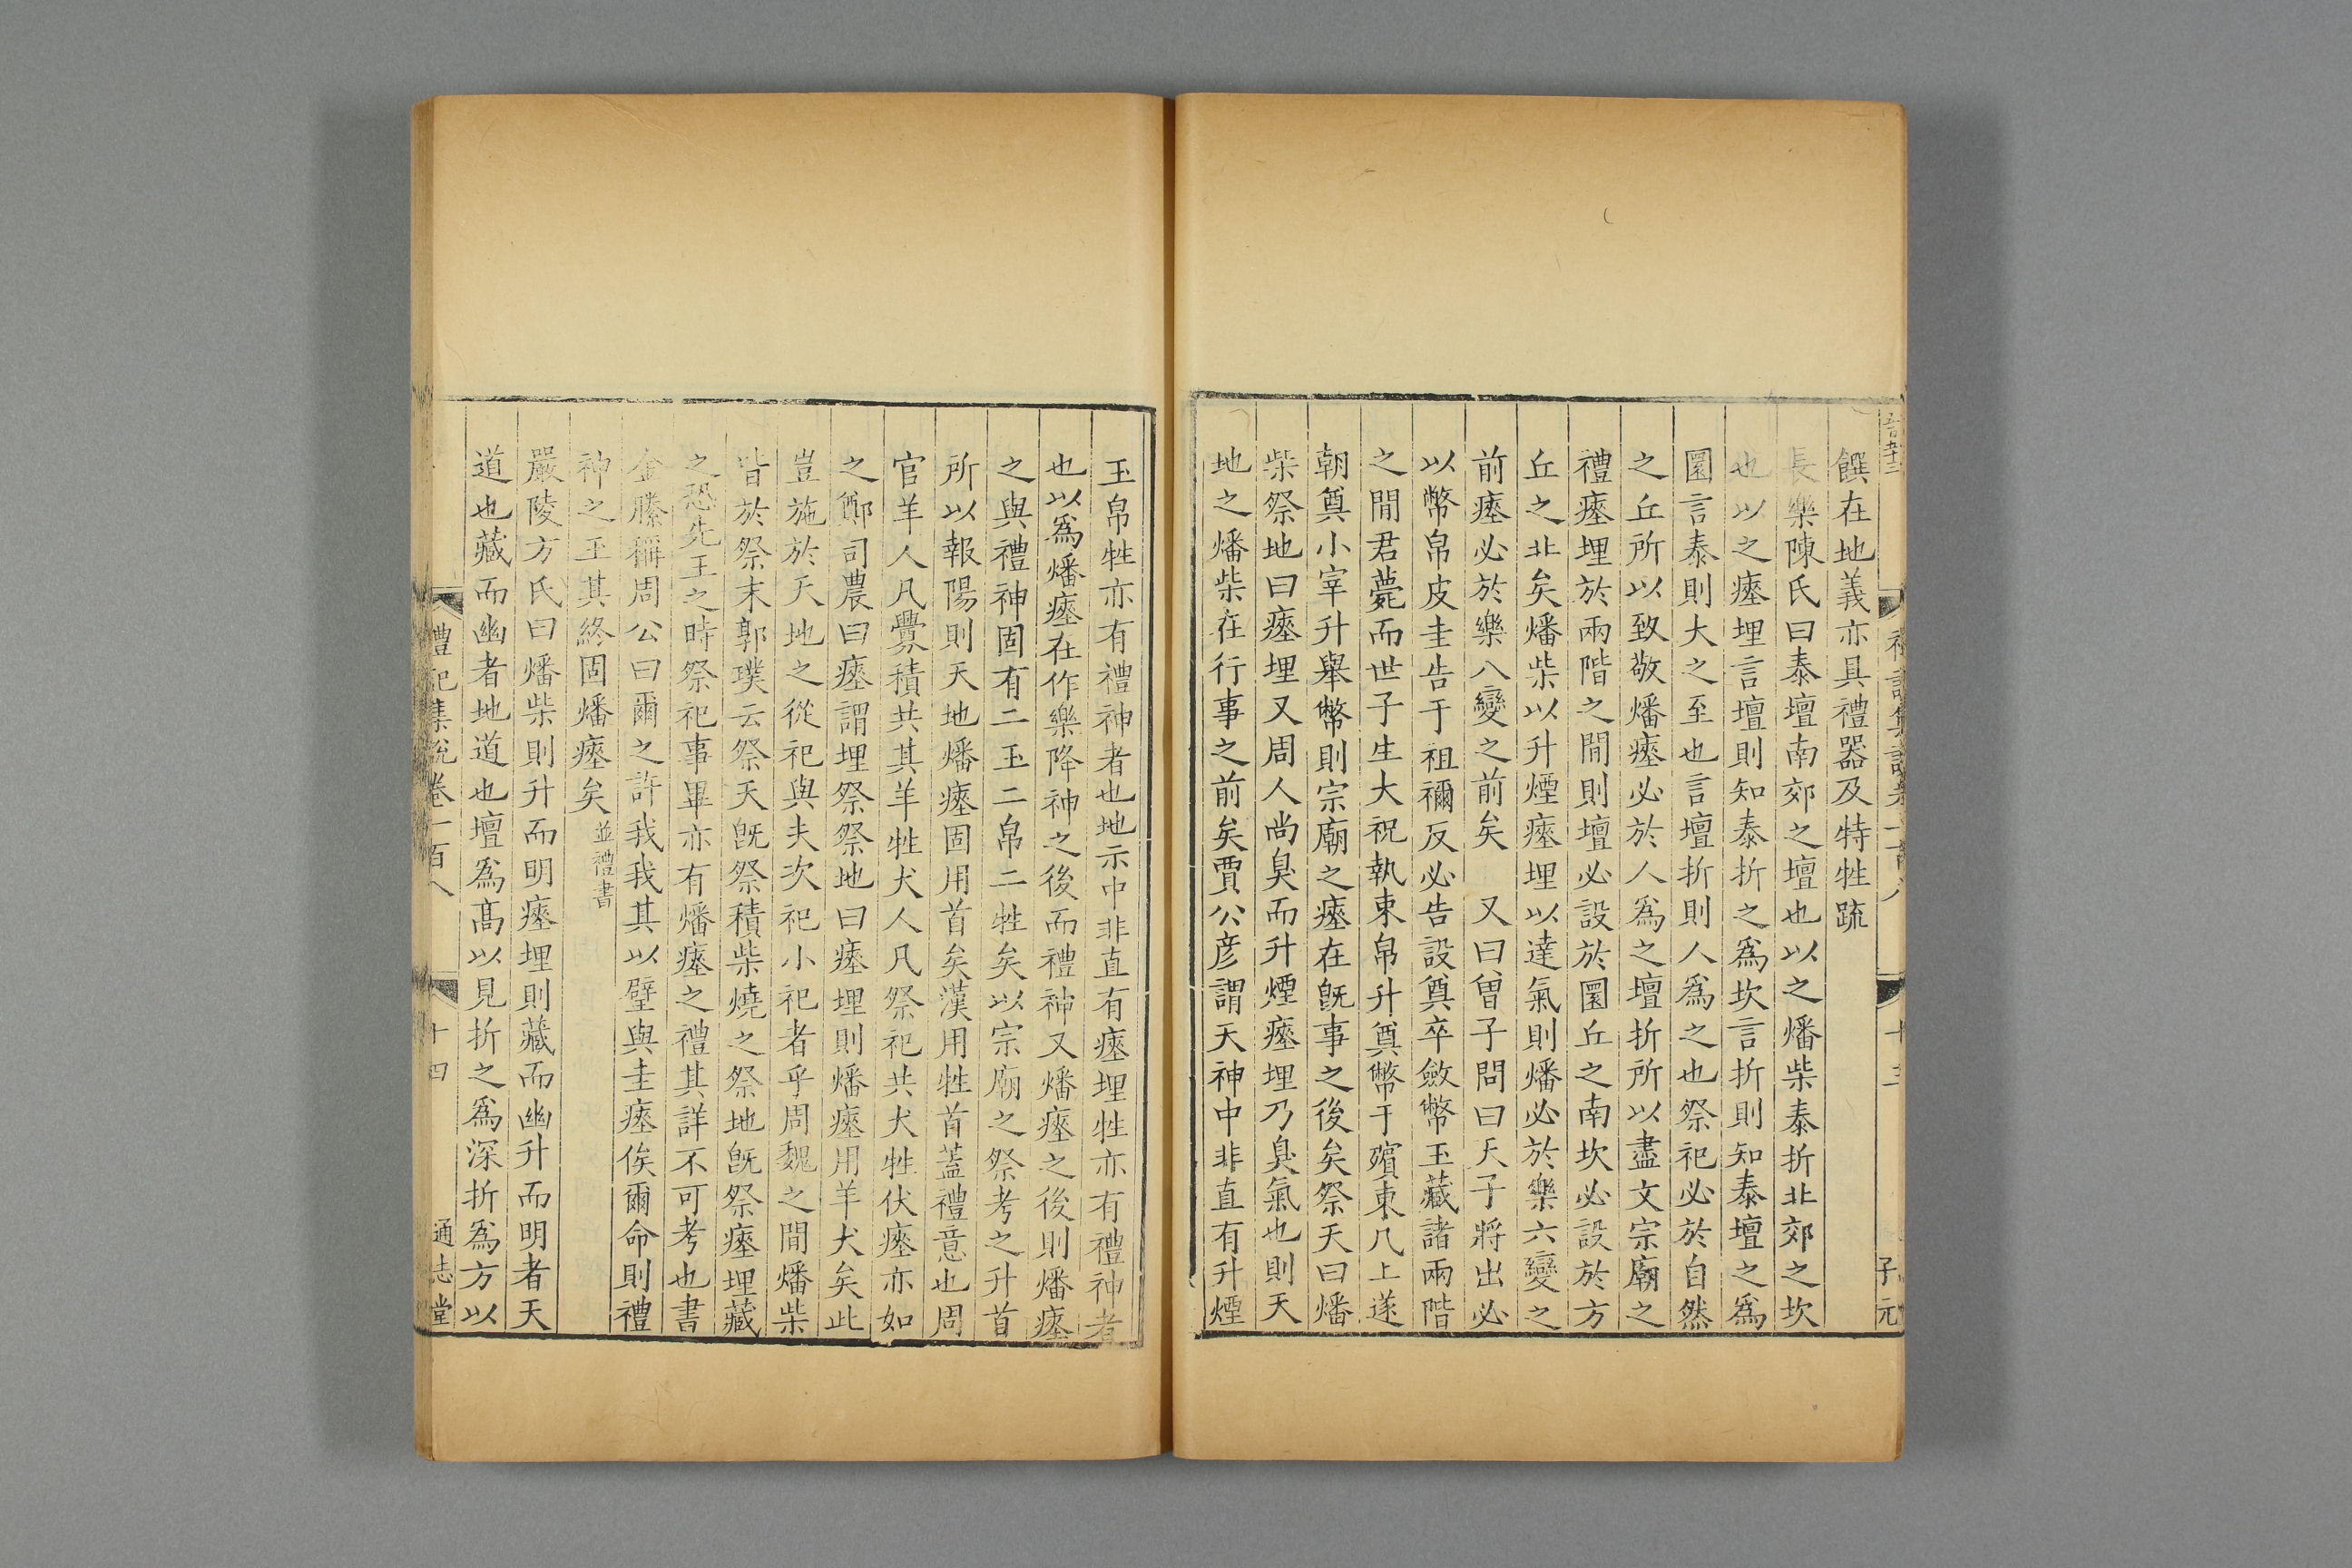 饌在地義亦具禮器及特牲疏
長樂陳氏曰泰壇南郊之壇也以之燔柴泰折北郊之坎
也以之瘞埋言壇則知泰折之爲坎言折則知泰壇之爲
圜言泰則大之至也言壇折則人爲之也祭祀必於自然
之丘所以致敬燔瘞必於人爲之壇折所以盡文宗廟之
禮瘞埋於兩階之閒則壇必設於圜丘之南坎必設於方
丘之北矣燔柴以升煙瘞埋以達氣則燔必於樂六變之
前瘞必於樂八變之前矣 又曰曾子問曰天子將出必
以幣帛皮圭告于祖禰反必告設奠卒斂幣玉藏諸兩階
之閒君薨而世子生大祝執束帛升奠幣于殯東几上遂
朝奠小宰升舉幣則宗廟之瘞在旣事之後矣祭天曰燔
柴祭地曰瘞埋又周人尚臭而升煙瘞埋乃臭氣也則天
地之燔柴在行事之前矣賈公彦謂天神中非直有升煙
玉帛牲亦有禮神者也地示中非直有瘞埋牲亦有禮神者
也以爲燔瘞在作樂降神之後而禮神又燔瘞之後則燔瘞
之與禮神固有二玉二帛二牲矣以宗廟之祭考之升首
所以報陽則天地燔瘞固用首矣漢用牲首蓋禮意也周
官羊人凡釁積共其羊牲犬人凡祭祀共犬牲伏瘞亦如
之鄭司農曰瘞謂埋祭祭地曰瘞埋則燔瘞用羊犬矣此
豈施於天地之從祀與夫次祀小祀者乎周魏之閒燔柴
皆於祭末郭璞云祭天旣祭積柴燒之祭地旣祭瘞埋藏
之恐先王之時祭祀事畢亦有燔瘞之禮其詳不可考也書
金縢稱周公曰爾之許我我其以璧與圭瘞俟爾命則禮
神之玉其終固燔瘞矣並禮書
嚴陵方氏曰燔柴則升而明瘞埋則藏而幽升而明者天
道也藏而幽者地道也壇爲高以見折之爲深折爲方以
禮記集說卷一百八 十四 通志堂